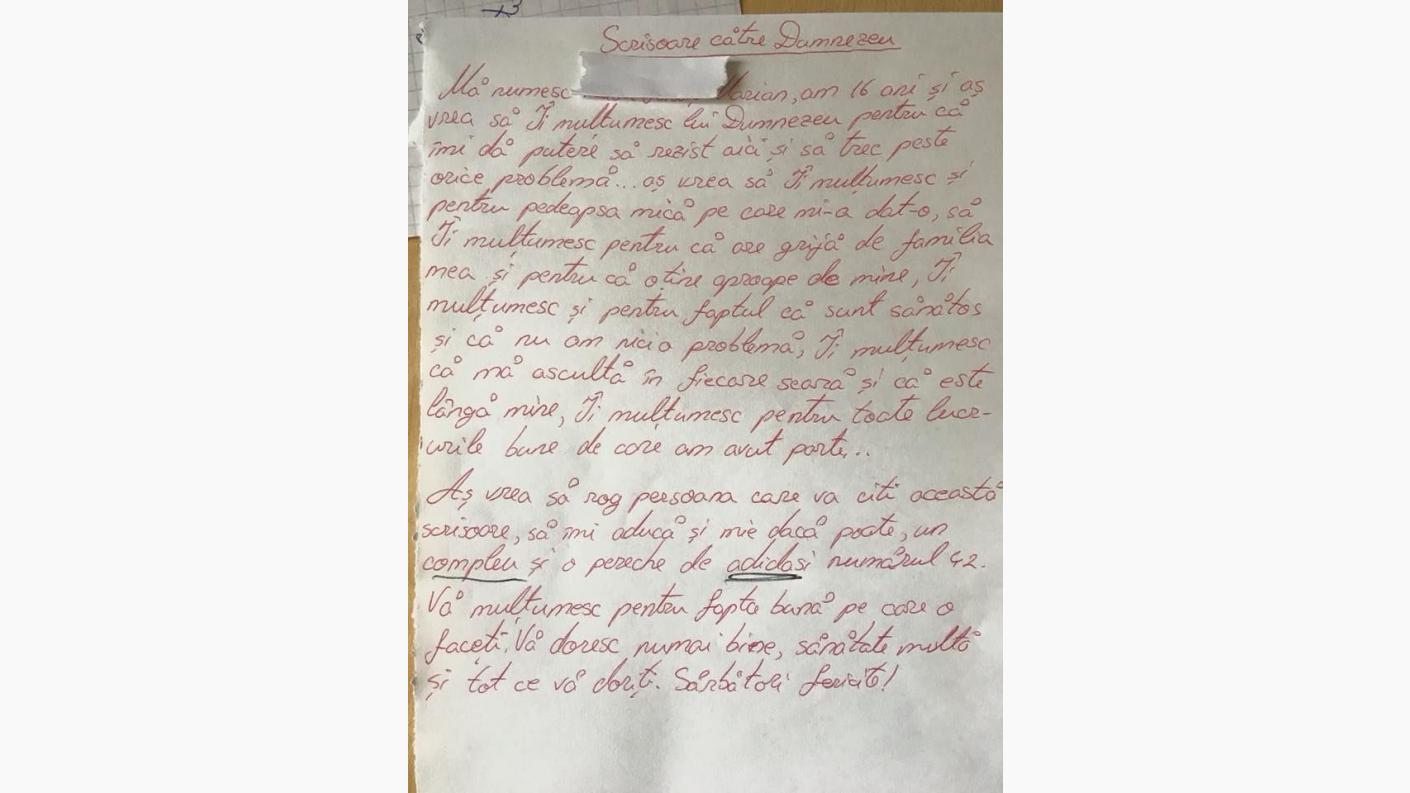 Scrisoare către Dumnezeu
Mă numesc Marian, am 16 ani și aș
vrea să Îi mulțumesc lui Dumnezeu pentru că
îmi dă putere să rezist aici și să trec peste
orice problemă... aș vrea să Îi mulțumesc și
pentru pedeapsa mică pe care mi-a dat-o, să
Îi mulțumesc pentru că are grijă de familia
mea și pentru că o ține aproape de mine, Îi
mulțumesc și pentru faptul că sunt sănătos
și că nu am nicio problemă, Îi mulțumesc
că mă ascultă în fiecare seară și că este
lângă mine, Îi mulțumesc pentru toate lucr-
urile bune de care am avut parte...
Aș vrea să rog persoana care va citi această
scrisoare, să îmi aducă și mie dacă poate, un
compleu și o pereche de adidasi numărul 42.
Vă mulțumesc pentru fapta bună pe care o
faceți. Vă doresc numai bine, sănătate multă
și tot ce vă doriți. Sărbători fericite!